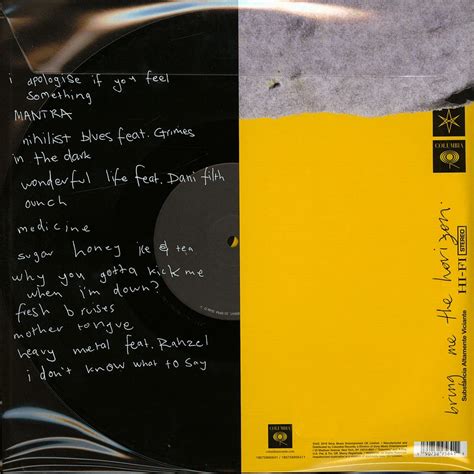 i apologise if you feel
something
MANTRA
nihilist blues feat. Grimes
in the dark
wonderful life feat. Dani filth
ounch
medicine
sugar honey ice & tea
why you gotta kick me
when i'm down?
fresh bruises
mother tongue
heavy metal feat. Rahzel
i don't know what to say
COLUMBIA
bring me the horizon.
Substância Altamente Viciante
HI-FI STEREO
COLUMBIA